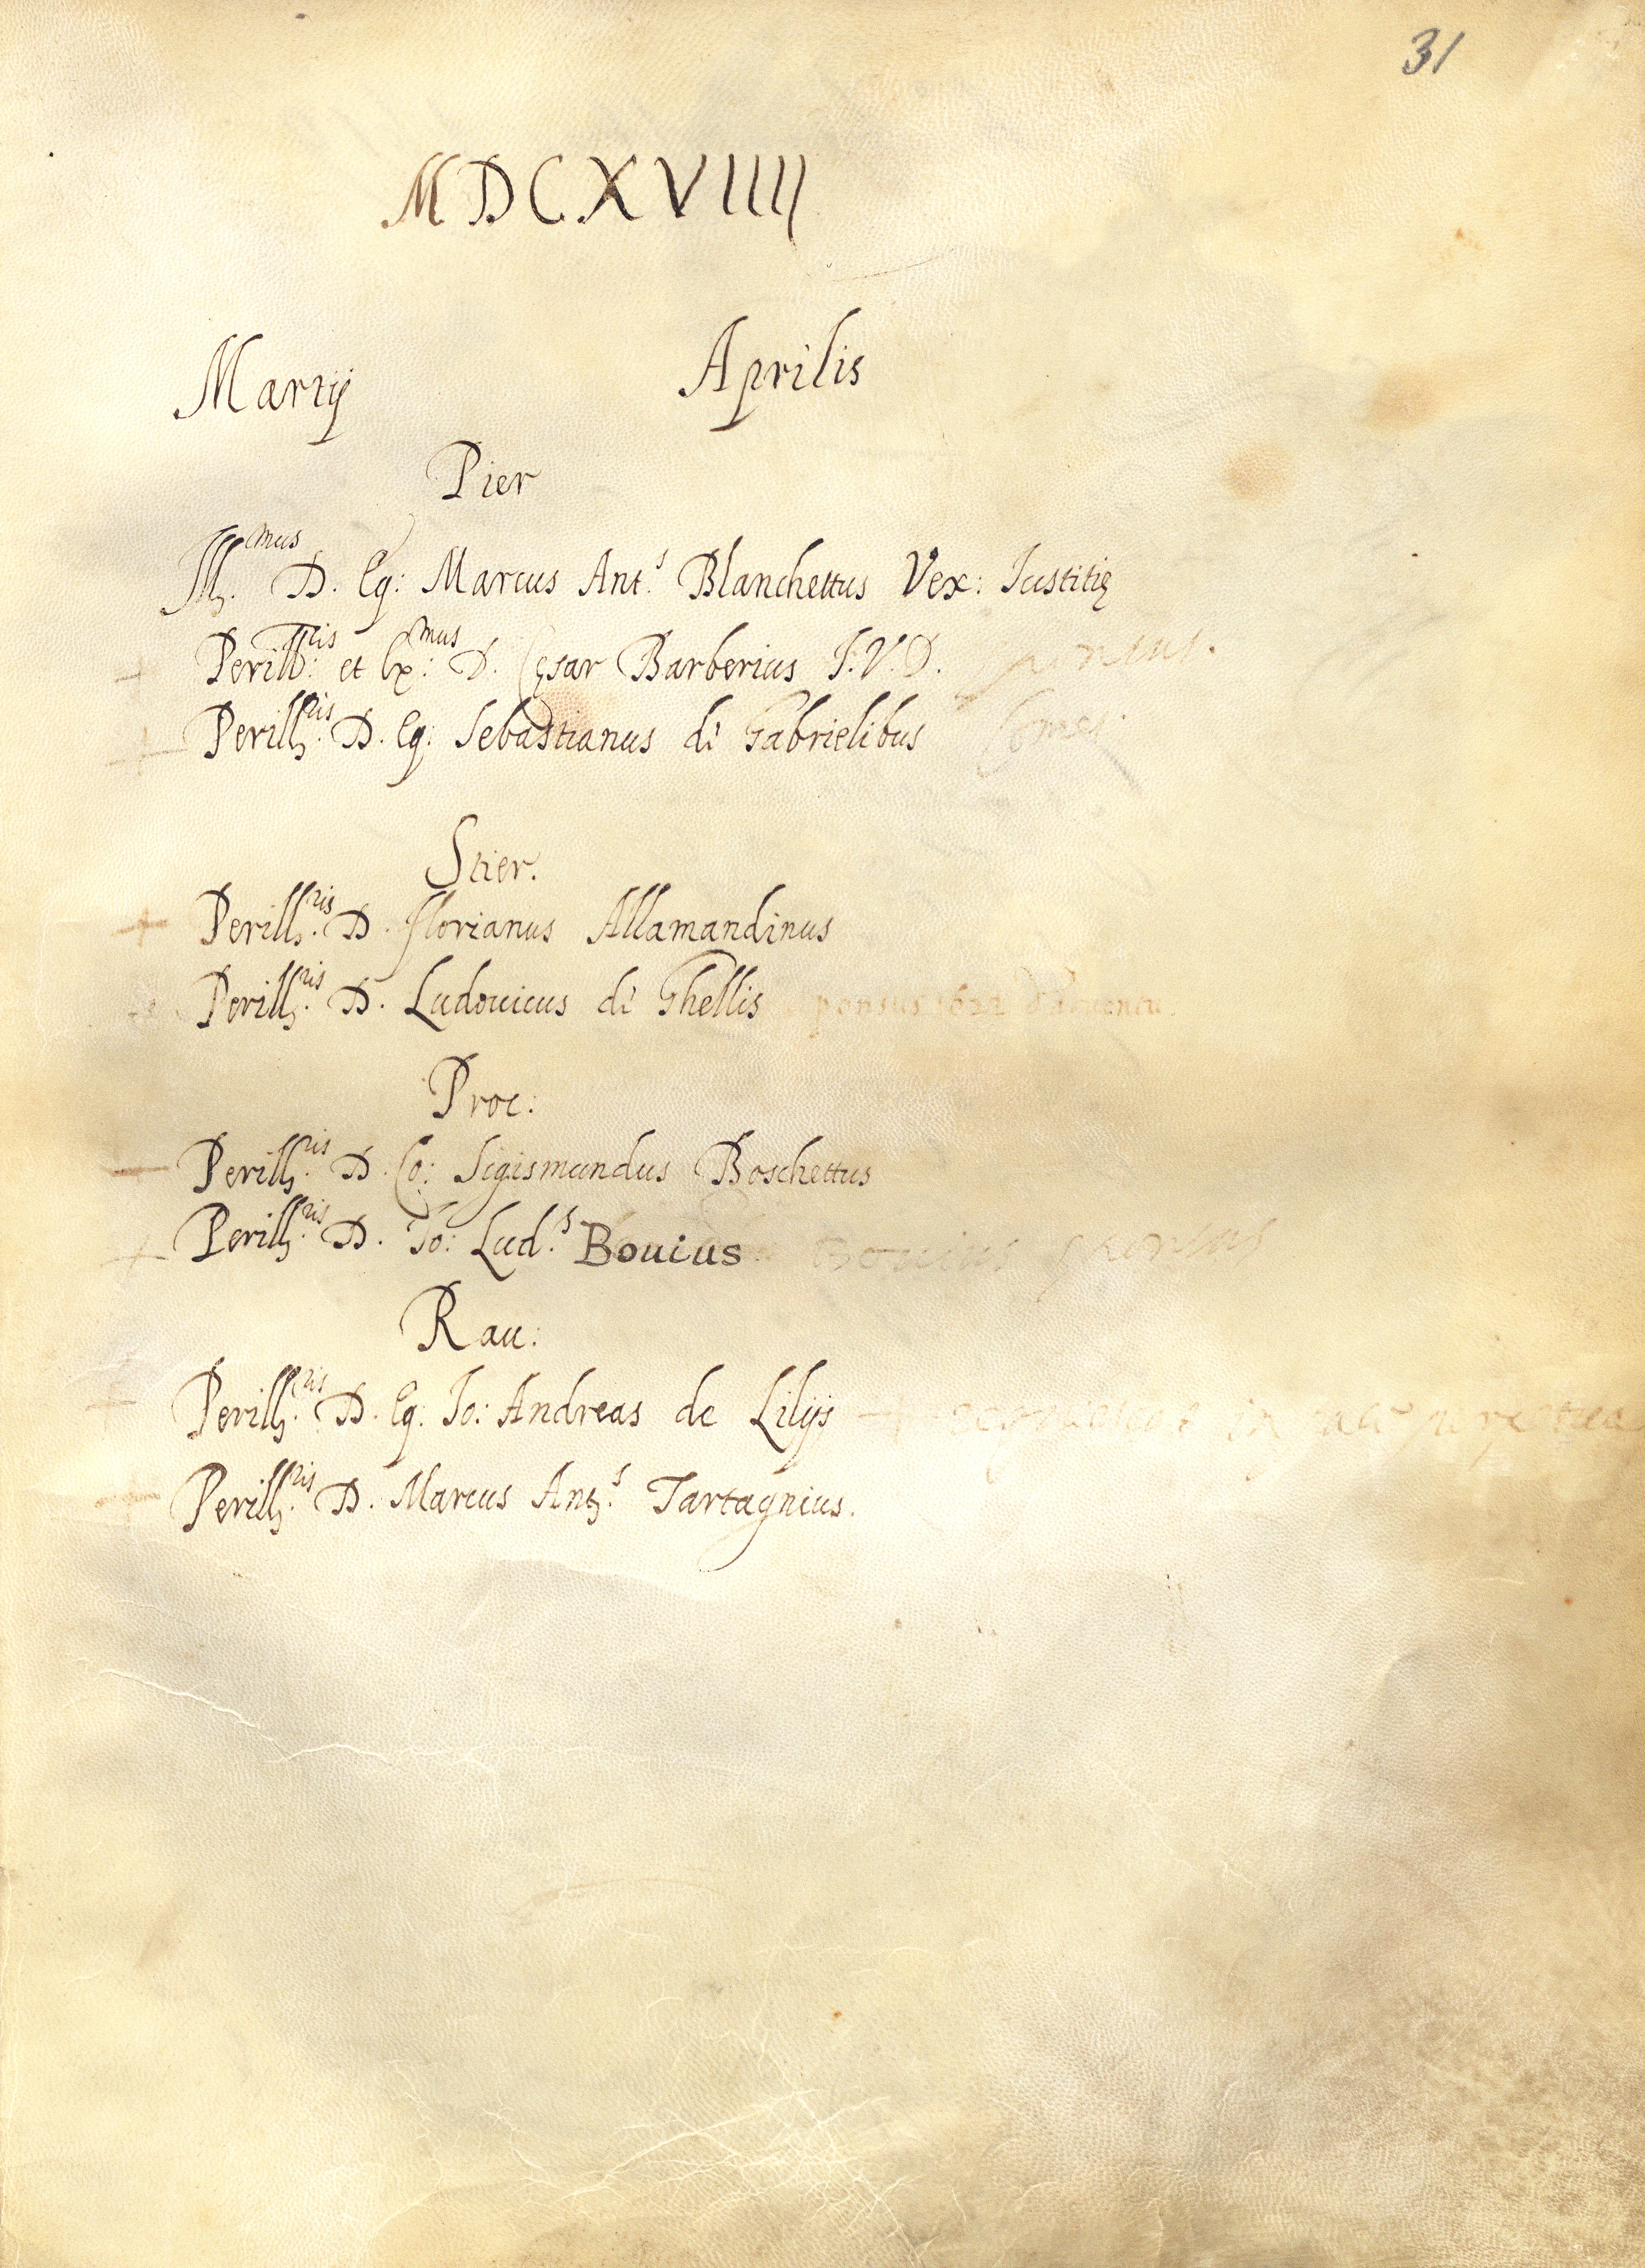 31
MDCXVIIII
Martij Aprilis
Pier
Ill.mus D. Eq: Marcus Ant.s Blanchettus Vex: Iustitię
Perill:ris et Ex:mus D. Cęsar Barberius I.V.D.
Perill.ris D. Eq: Sebastianus de Gabrielibus
Stier.
+ Perill.ris D. Florianus Allamandinus
Perill.ris D. Ludouicus de Ghellis pensus 1622
Proc:
Perill.ris D. Co: Sigismundus Boschettus
+ Perill.ris D. Io: Lud.s Bouius Bouius
Rau:
Perill.ris D. Eq: Io: Andreas de Lilijs
Perill.ris D. Marcus Ant.s Tartagnius.